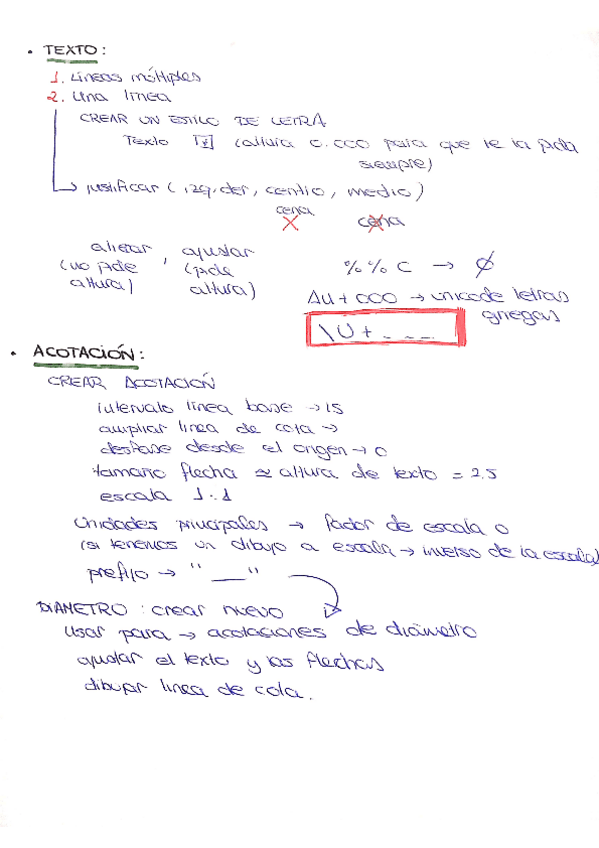 • TEXTO:
1. Líneas múltiples
2. Una línea
CREAR UN ESTILO DE LETRA
Texto (altura 0.000 para que te la pida
siempre)
justificar (izq, der, centro, medio)
cena cena
alinear, ajustar
(no pide (pide
altura) altura)
%%C → Ø
ΔU+000 → unicode letras
griegas
\U+_ _ _.
• ACOTACIÓN:
CREAR ACOTACIÓN
intervalo línea base → 15
ampliar línea de cota →
desfase desde el origen → 0
tamaño flecha ≈ altura de texto = 2,5
escala 1:1
Unidades principales → factor de escala 0
(si tenemos un dibujo a escala → inverso de la escala)
prefijo → "___"
DIAMETRO: crear nuevo
usar para → acotaciones de diámetro
ajustar el texto y las flechas
dibujar línea de cota.